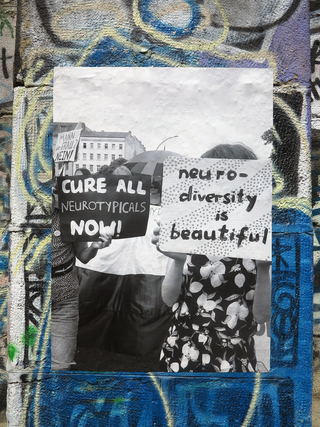 CURE ALL
NEUROTYPICALS
NOW!
neuro-
diversity
is
beautiful